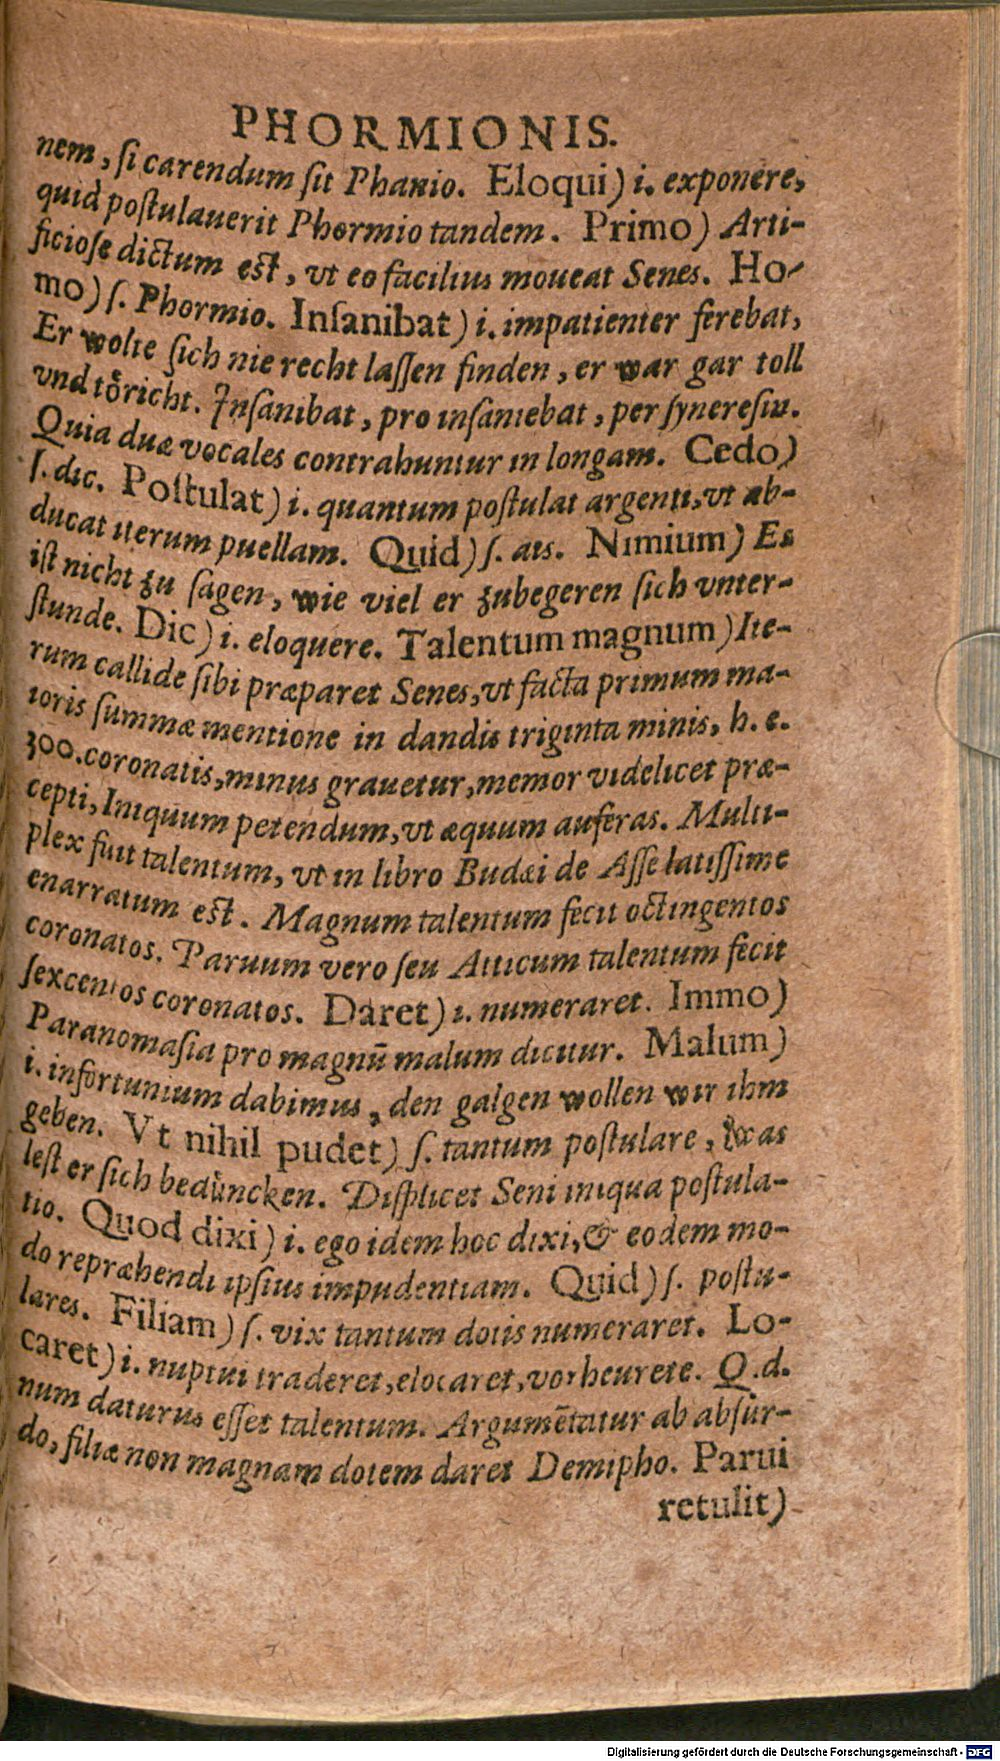 PHORMIONIS.
nem, ſi carendum ſit Phanio. Eloqui) i. exponere,
quid poſtulauerit Phormio tandem. Primo) Arti-
ficioſe dictum eſt, vt eo facilius moueat Senes. Ho-
mo) ſ. Phormio. Inſanibat) i. impatienter ferebat,
Er wolte ſich nie recht laſſen finden, er war gar toll
vnd toͤricht. Inſanibat, pro inſaniebat, per ſyneresin.
Quia duæ vocales contrahuntur in longam. Cedo)
ſ. dic. Poſtulat) i. quantum poſtulat argenti, vt ab-
ducat iterum puellam. Quid) ſ. ais. Nimium) Es
iſt nicht zu ſagen, wie viel er zubegeren ſich vnter-
ſtunde. Dic) i. eloquere. Talentum magnum) Ite-
rum callide ſibi præparet Senes, vt facta primum ma-
ioris ſummæ mentione in dandis triginta minis, h. e.
300. coronatis, minus grauetur, memor videlicet præ-
cepti, Iniquum petendum, vt æquum auferas. Multi-
plex fuit talentum, vt in libro Budæi de Aſſe latiſſime
enarratum eſt. Magnum talentum fecit octingentos
coronatos. Paruum vero ſeu Atticum talentum fecit
ſexcentos coronatos. Daret) i. numeraret. Immo)
Paranomaſia pro magnū malum dicitur. Malum)
i. infortunium dabimus, den galgen wollen wir ihm
geben. Vt nihil pudet) ſ. tantum poſtulare, Was
leſt er ſich beduͤncken. Diſplicet Seni iniqua poſtula-
tio. Quod dixi) i. ego idem hoc dixi, & eodem mo-
do repræhendi ipſius impudentiam. Quid) ſ. poſtu-
lares. Filiam) ſ. vix tantum dotis numeraret. Lo-
caret) i. nuptui traderet, elocaret, vorheurete. Q. d.
num daturus eſſet talentum. Argumētatur ab abſur-
do, filiæ non magnam dotem daret Demipho. Parui
retulit)
Digitalisierung gefördert durch die Deutsche Forschungsgemeinschaft - DFG